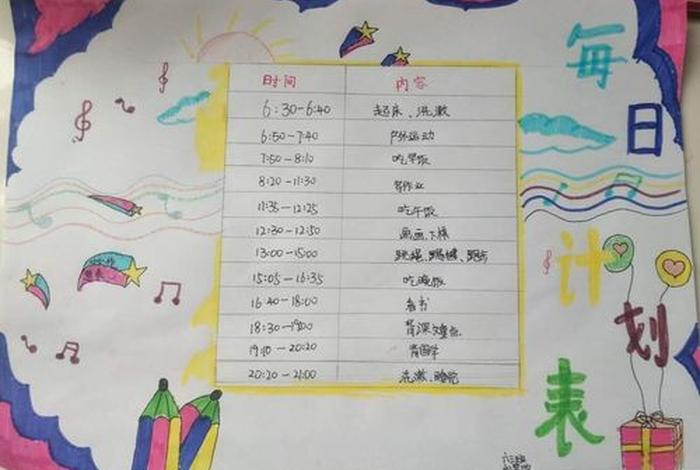 每日计划表
时间 内容
6:30-6:40 起床、洗漱
6:50-7:40 户外运动
7:50-8:10 吃早饭
8:20-11:30 写作业
11:35-12:25 吃午饭
12:30-12:50 画画、下棋
13:00-15:00 跳绳、踢毽、跑步
15:05-16:35 吃晚饭
16:40-18:00 看书
18:30-19:00
19:10-20:20 背国学
20:20-21:00 洗漱、睡觉
六三班